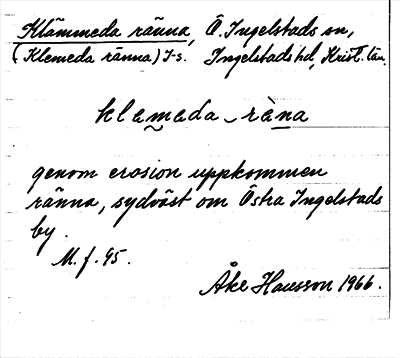 Klämmeda ränna, Ö. Ingelstads sn,
(Klemeda ränna) I-s. Ingelstads hd, Krist. län.
klamada ràna
genom erosion uppkommen
ränna, sydväst om Östra Ingelstads
by.
M. f. 95.
Åke Hansson 1966.